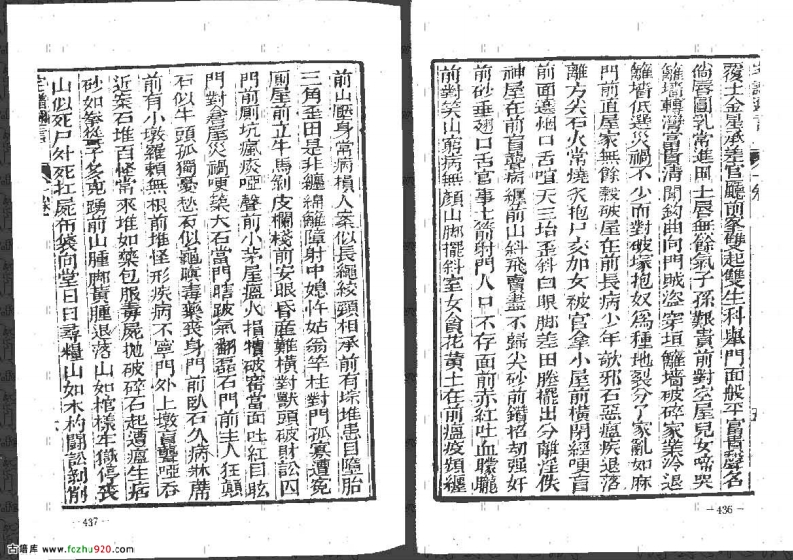 覆土金星承差官廳前峯雙起雙生科舉門面般平富貴聲名
尙唇圓乳常進田土唇無餘氣子孫艱貴前對空屋兒女啼哭
籬墻轉灣富貴清閒鈎曲向門賊盜穿垣籬墻破碎家業冷退
籬墻低遶災禍不少面對破塚抱奴爲種地裂分了家亂如麻
門前直屋家無餘穀破屋在前長病少年欹邪石惡瘟疾退落
離方尖石火常燒衣抱尸交加女被官拿小屋前橫閉經哽盲
前面遶烟口舌喧天三塘歪斜白眼脚差田塍擺出分離淫佚
神屋在前盲聾病纏前山斜飛賣盡不歸尖砂前鎗招刼强奸
前砂垂翅口舌官事土箭射門人口不存面前赤紅吐血朦朧
前對笑山窮病無顔山脚擺斜室女貪花黄土在前瘟疫頻纏
-436-
前山壓身常病損人案似長繩絞頸相承前有琮堆患目墮胎
三角歪田是非纏綿離障射中媳忤姑翁竿柱對門孤寡遭寃
厠屋前立牛馬剝皮欄棧前安眼昏產難橫對獸頭破財訟四
門前厠坑瘋痰啞聲前小茅屋瘟火損犢破窰當面吐紅目眩
門對着屋災禍哽葉大石當門瞎跛氣翻磊石門前主人狂顛
石似牛頭孤獨憂愁石似龜鼈毒藥喪身門前臥石久病牀蓆
前有小墩羅賴無根前堆怪形疾病不寧門外上墩盲聾啞吞
近築石堆百怪常來堆如藥包服毒屍抛破碎石起遭瘟生病
砂如拳掌子多克踴前山腫脚黄腫退落山如棺樣牢獄停丧
山似死尸外死扛屍布袋向堂日日尋糧山如木杓鬪訟剝削
437
古籍库 www.fczhu920.com